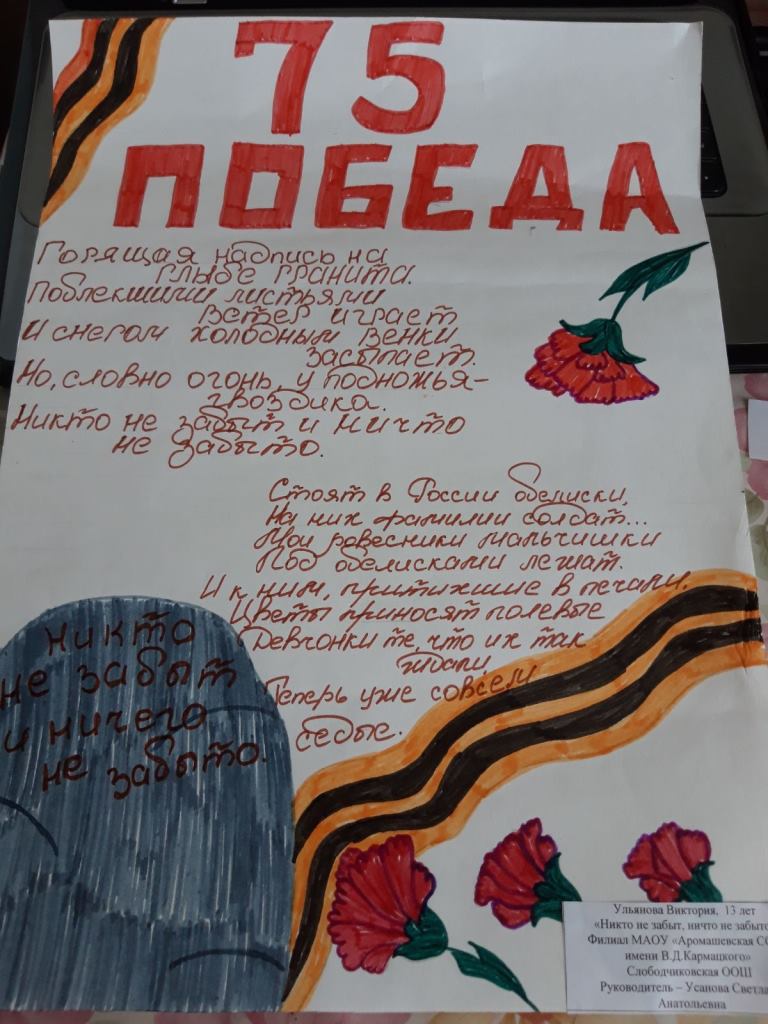 75
ПОБЕДА
Горящая надпись на
глыбе гранита.
Поблекшими листьями
ветер играет
И снегом холодным венки
засыпает.
Но, словно огонь, у подножья-
гвоздика.
Никто не забыт и ничто
не забыто.
Стоят в России обелиски,
На них фамилии солдат...
Мои ровесники мальчишки
Под обелисками лежат.
И к ним, притихшие в печали,
Цветы приносят полевые
Девчонки те, что их так
ждали,
Теперь уже совсем
седые.
никто
не забыт
и ничего
не забыто.
Ульянова Виктория, 13 лет
«Никто не забыт, ничто не забыто
Филиал МАОУ «Аромашевская СО
имени В.Д.Кармацкого»
Слободчиковская ООШ
Руководитель – Усанова Светла
Анатольевна